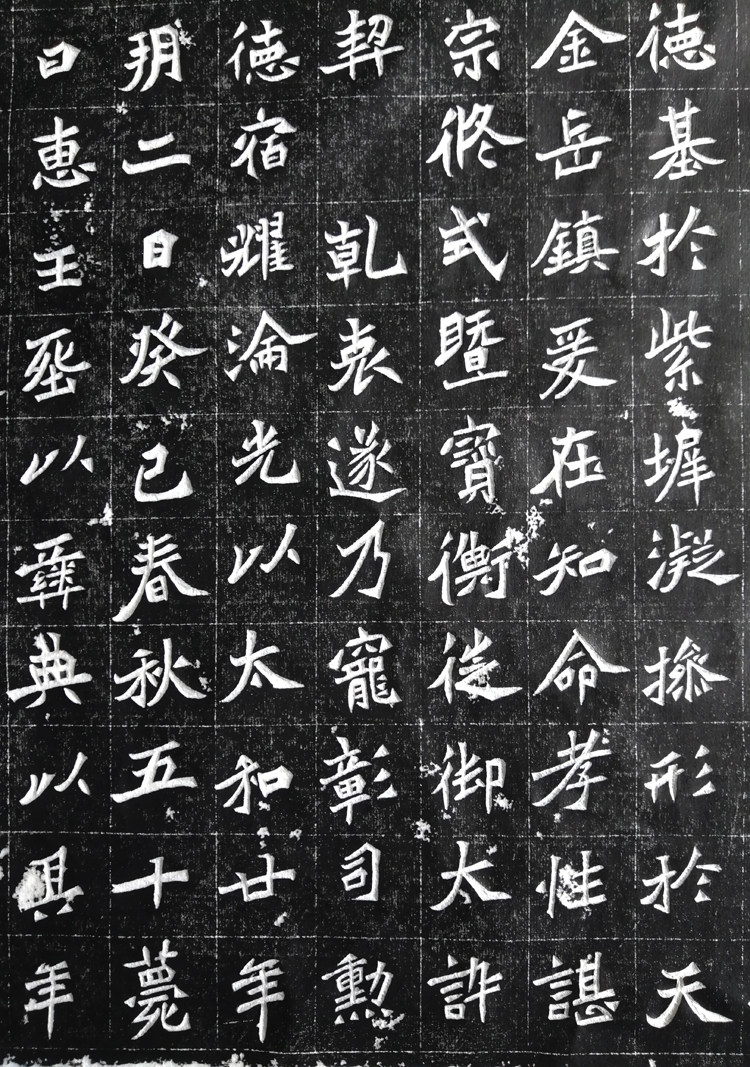 德基於紫墀凝操形於天
金岳鎮爰在知命孝性諶
宗攸式暨寶衡徙御太訊
契　乾衷遂乃寵彰司勳
德宿耀淪光以太和廿年
朔二日癸巳春秋五十薨
曰惠王葬以彝典以其年